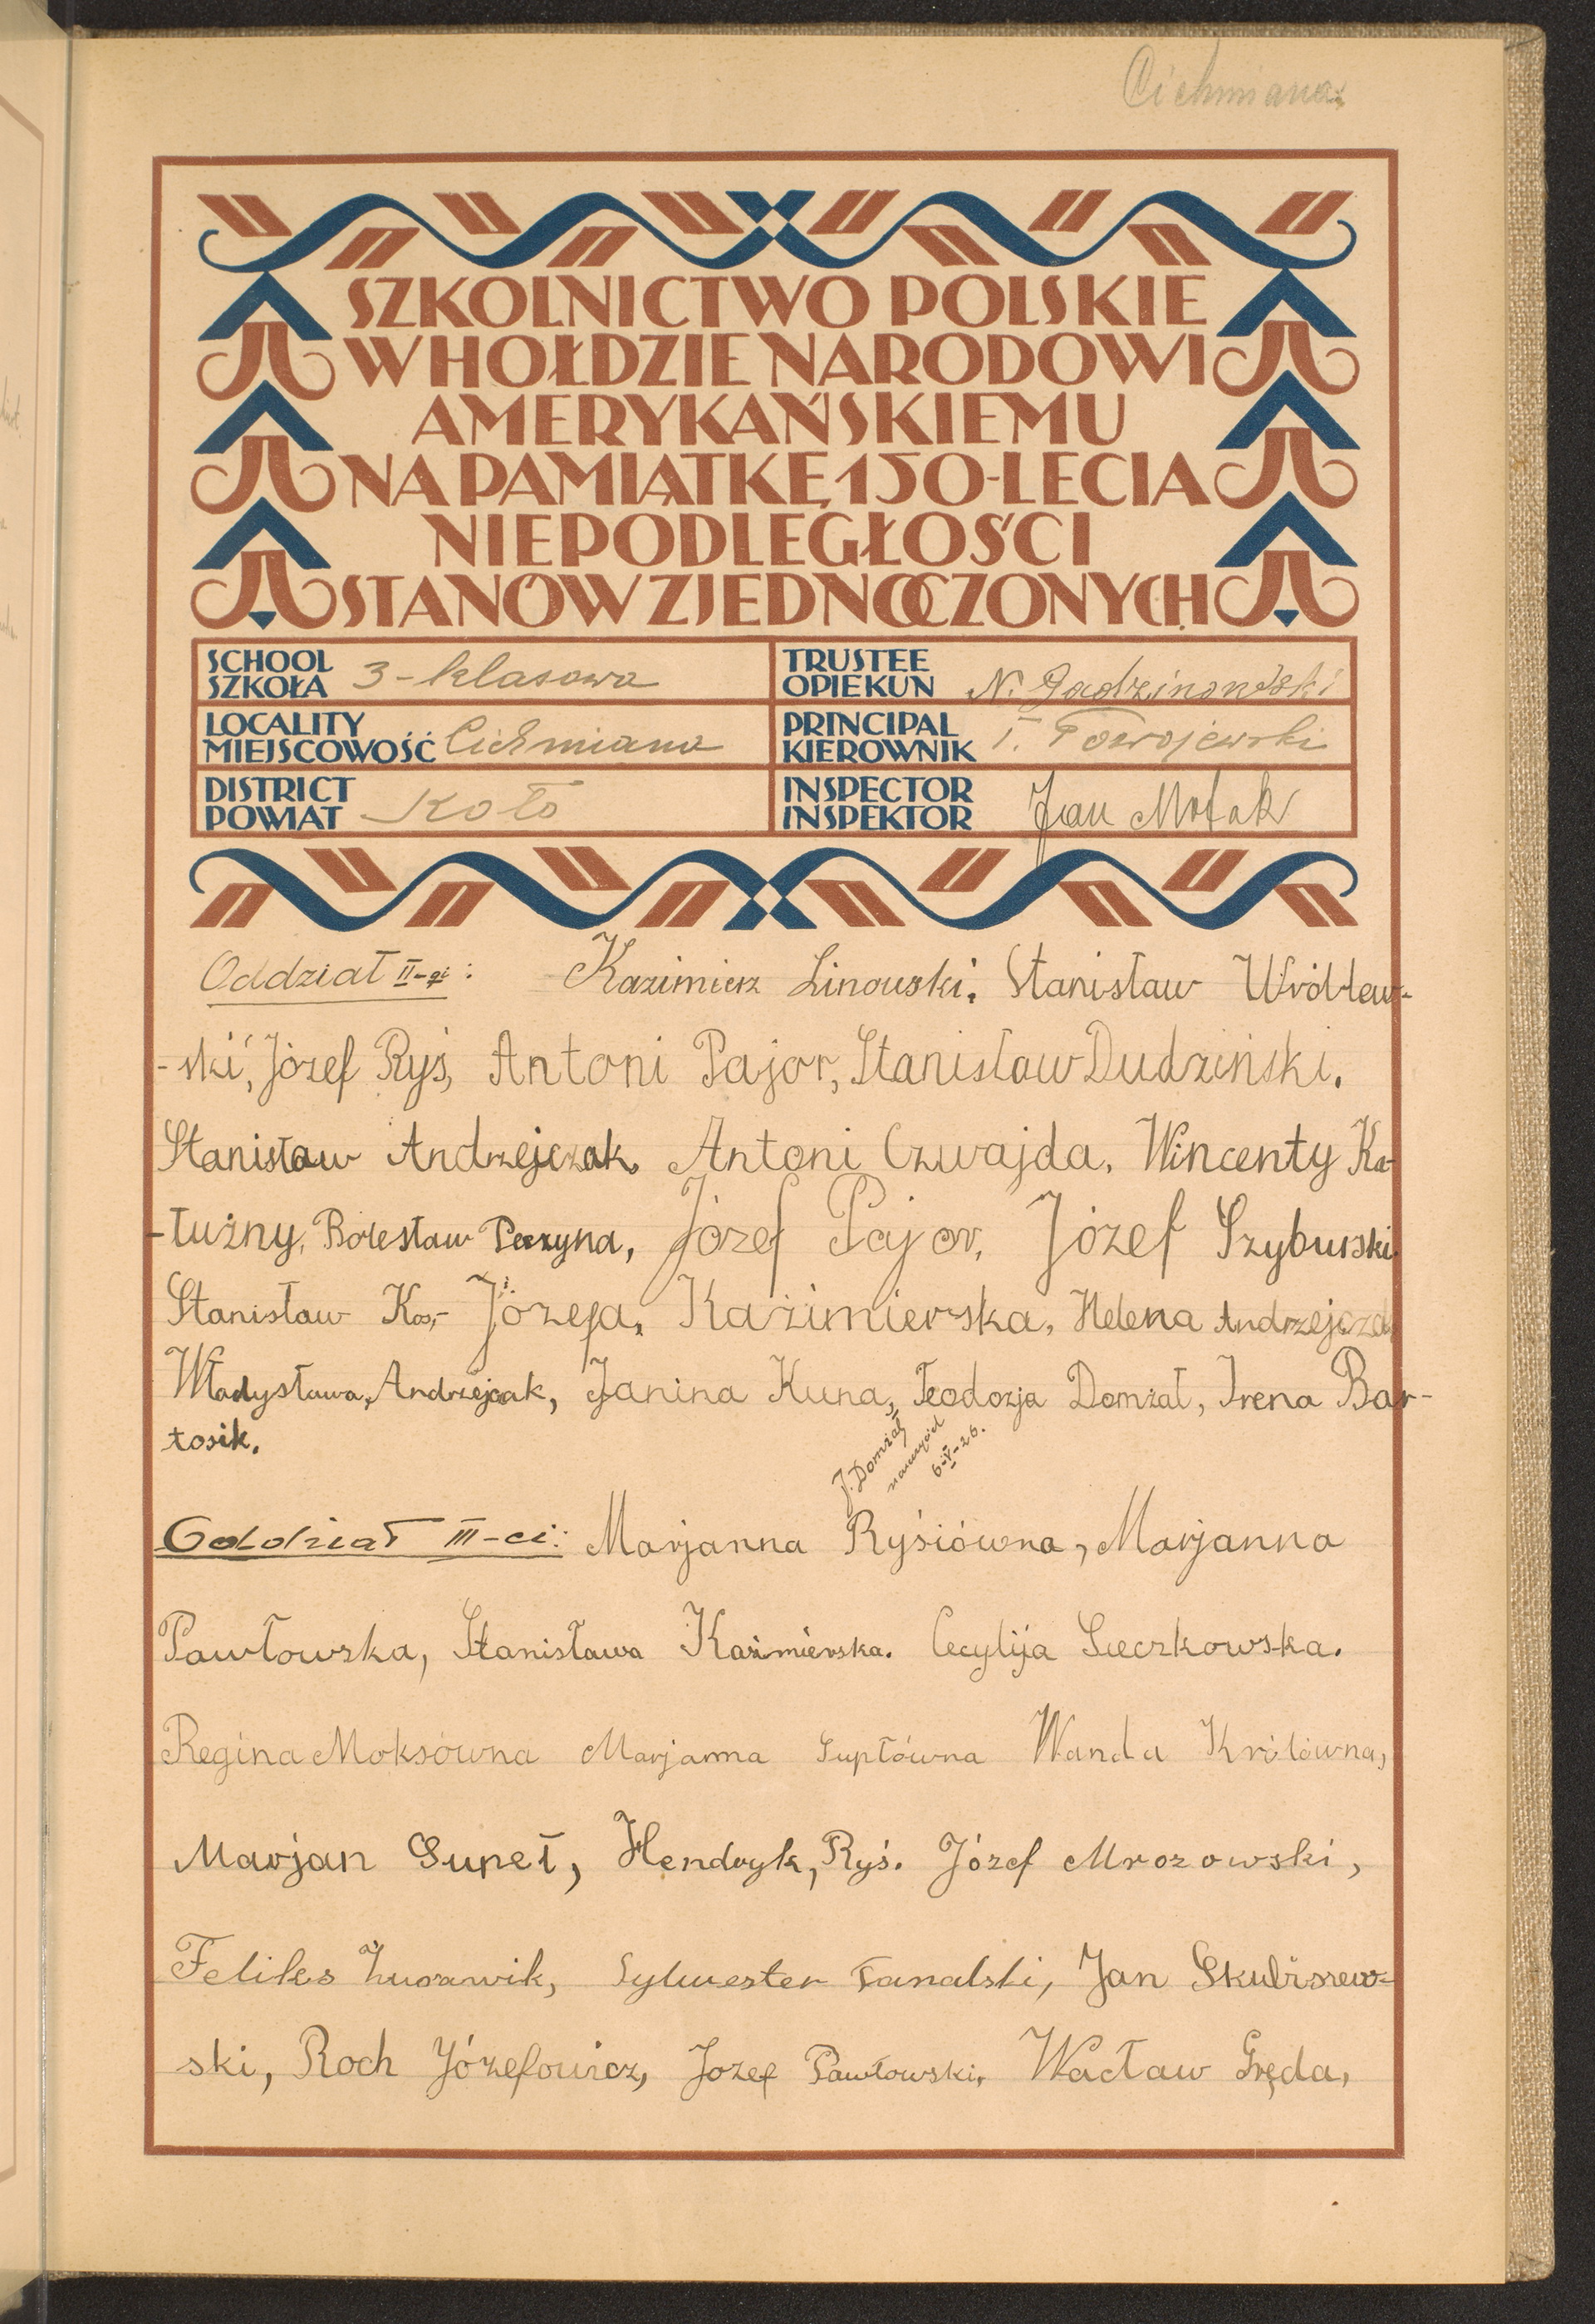 Cichmiana
SZKOLNICTWO POLSKIE
W HOŁDZIE NARODOWI
AMERYKAŃSKIEMU
NA PAMIĄTKĘ 150-LECIA
NIEPODLEGŁOŚCI
STANÓW ZJEDNOCZONYCH
SCHOOL
SZKOŁA 3-klasowa
TRUSTEE
OPIEKUN N.
LOCALITY
MIEJSCOWOŚĆ Cichmiana
PRINCIPAL
KIEROWNIK
DISTRICT
POWIAT Koło
INSPECTOR
INSPEKTOR Jan
Oddział II-gi: Kazimierz Linowski. Stanisław Wróblew-
-ski, Józef Ryś, Antoni Pajor, Stanisław Dudziński.
Stanisław Andrzejczak, Antoni Czwajda, Wincenty Ka-
-łużny, Bolesław Peczyna, Józef Pajor, Józef Szyburski
Stanisław Kos, Józefa, Kaźimierska, Helena Andrzejczak
Władysława, Andrzejczak, Janina Kuna, Teodozja Domżał, Irena Bar-
tosik.
J. Domżał
nauczyciel
6-V-26.
Oddział III-ci: Marjanna Ryśiówna, Marjanna
Pawłowska, Stanisława Kaźmierska. Cecylija Sieczkowska.
Regina Moksówna Marjanna Supłówna Wanda Królówna,
Marjan Supeł, Hendryk, Ryś. Józef Mrozowski,
Feliks Żurawik, Sylwester Fanalski, Jan Skubiszew-
ski, Roch Józefowicz, Jozef Pawłowski, Wacław Gręda,